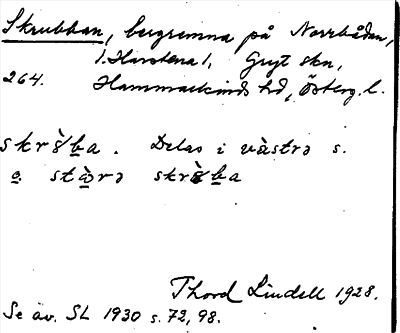 Skrubban, bergremna på Norrbådan,
1. Harstena 1, Gryt skn,
264. Hammarkinds hd, Österg. l.
skrὲ̀ba. Delas i västrə s.
o. stœ̀rə skrὲ̀ba
Thord Lindell 1928.
Se äv. SL 1930 s. 72, 98.